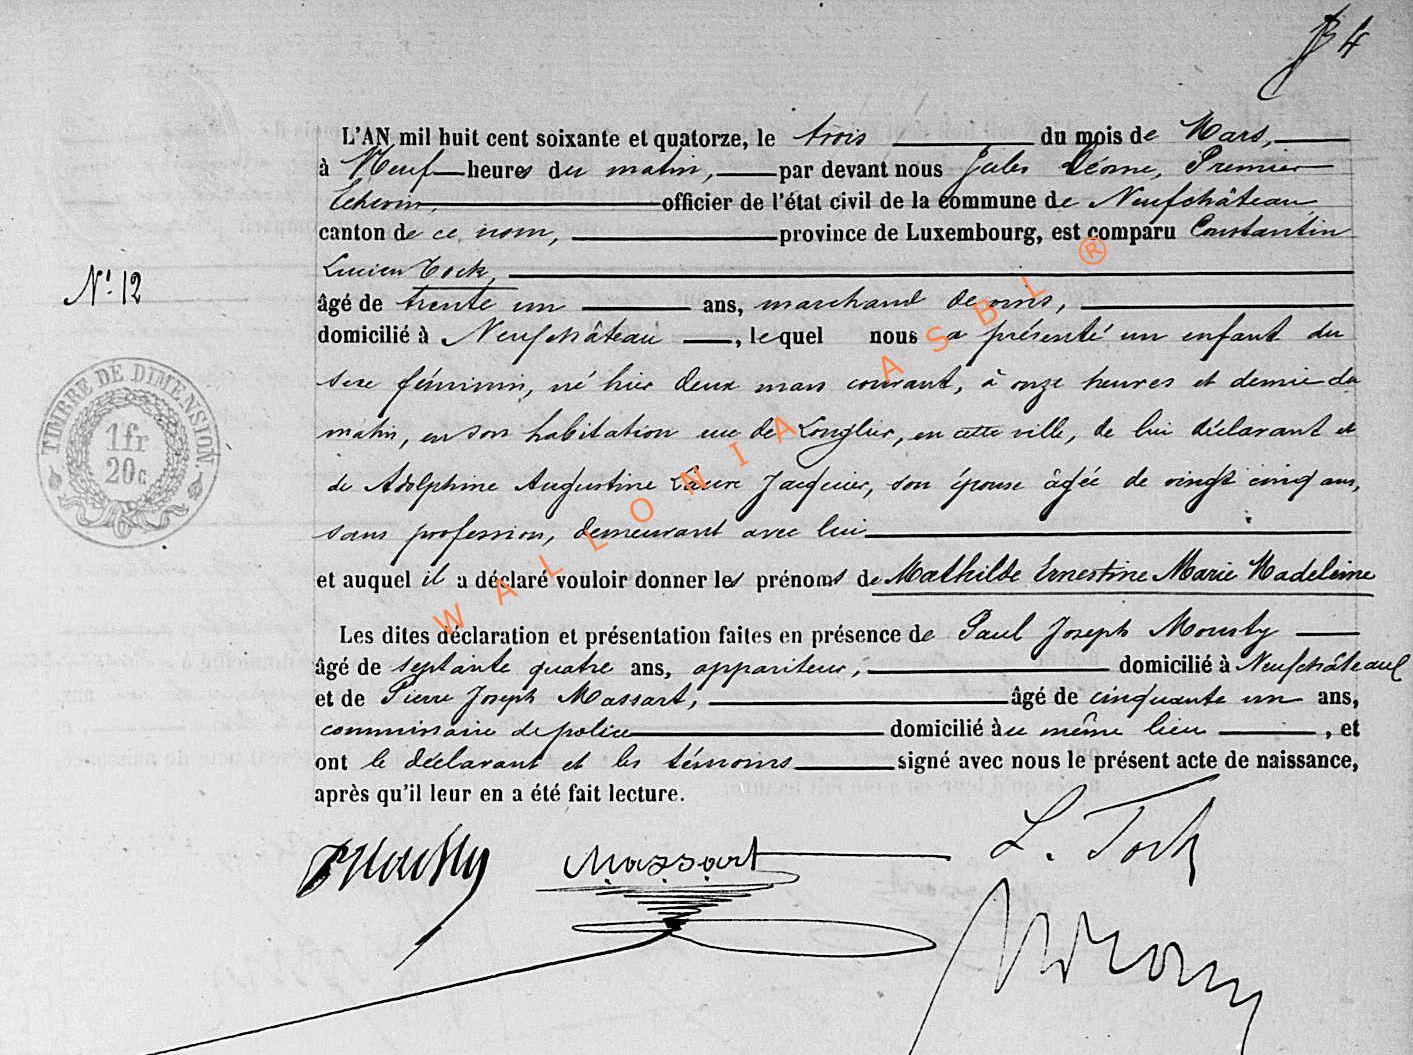 4
L'AN mil huit cent soixante et quatorze, le trois du mois de Mars,
à Neuf heures du matin, par devant nous Jules Léome, Premier
Echevin, officier de l'état civil de la commune de Neufchâteau,
canton de ce nom, province de Luxembourg, est comparu Constantin
Lucien Tock,
N° 12
âgé de trente un ans, marchand de vins,
domicilié à Neufchâteau, lequel nous a présenté un enfant du
sexe féminin, né hier deux mars courant, à onze heures et demie du
TIMBRE DE DIMENSION.
1fr
20c
matin, en son habitation rue de Longlier, en cette ville, de lui déclarant et
de Adolphine Augustine Laure Jacquier, son épouse âgée de vingt cinq ans,
sans profession, demeurant avec lui
et auquel il a déclaré vouloir donner les prénoms de Mathilde Ernestine Marie Madeleine
Les dites déclaration et présentation faites en présence de Paul Joseph Mousty
âgé de septante quatre ans, appariteur, domicilié à Neufchâteau
et de Pierre Joseph Massart, âgé de cinquante un ans,
commissaire de police domicilié au même lieu, et
ont le déclarant et les témoins signé avec nous le présent acte de naissance,
après qu'il leur en a été fait lecture.
Mousty Massart L. Tock
WALLONIA ASBL ®